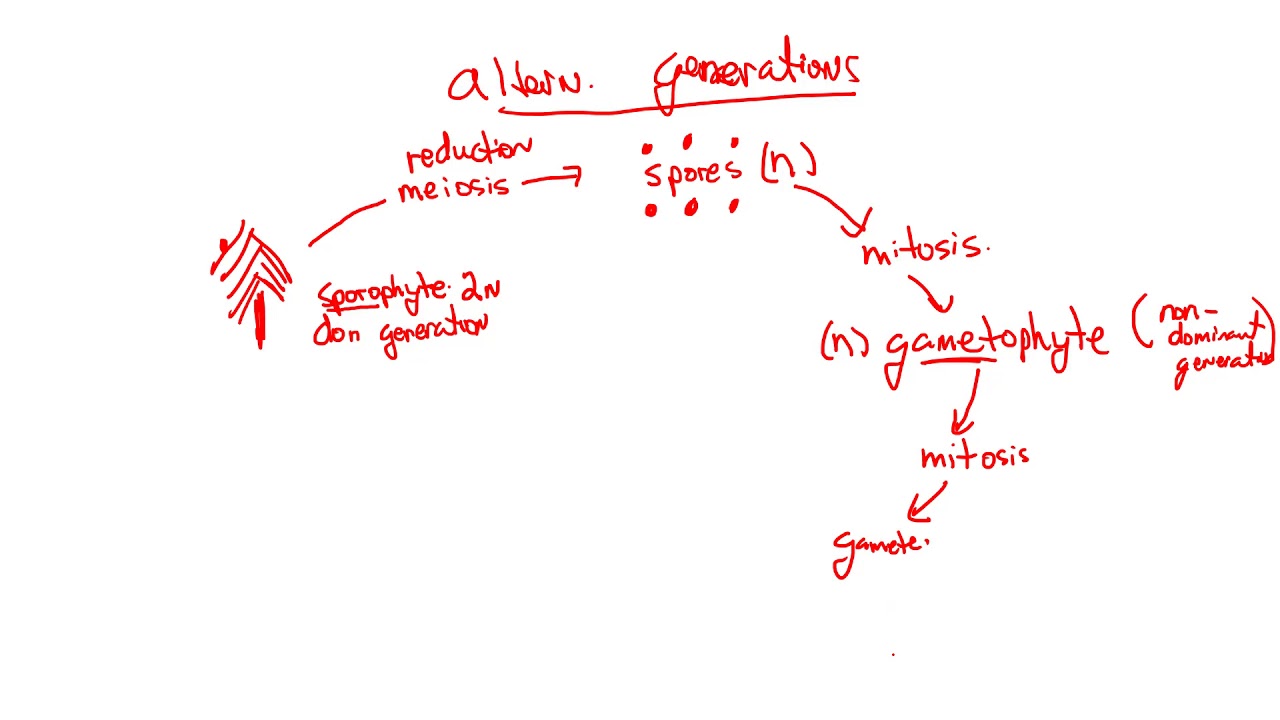 altern. generations
reduction
meiosis
spores (n)
mitosis.
sporophyte. 2N
don generation
(n) gametophyte (non-
dominant
generation)
mitosis
gamete.